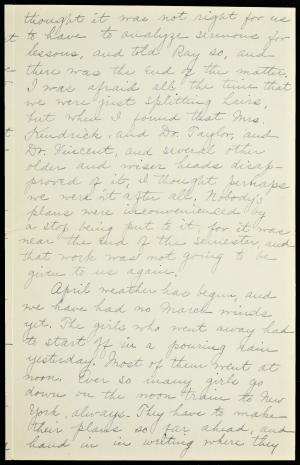 thought it was not right for us
to have to analyze sermons for
lessons, and told Ray so, and
there was the end of the matter.
I was afraid all the time that
we were just splitting hairs,
but when I found that Mrs.
Kendrick and Dr. Taylor, and
Dr. Vincent, and several other
older and wiser heads disap-
proved of it, I thought perhaps
we weren't after all. Nobody's
plans were inconvenienced by
a stop being put to it, for it was
near the end of the semester, and
that work was not going to be
given to us again.
April weather has begun, and
we have had no March winds
yet. The girls who went away had
to start off in a pouring rain
yesterday. Most of them went at
noon. Ever so many girls go
down on the noon train to New
York, always. They have to make
their plans so far ahead, and
hand in in writing where they